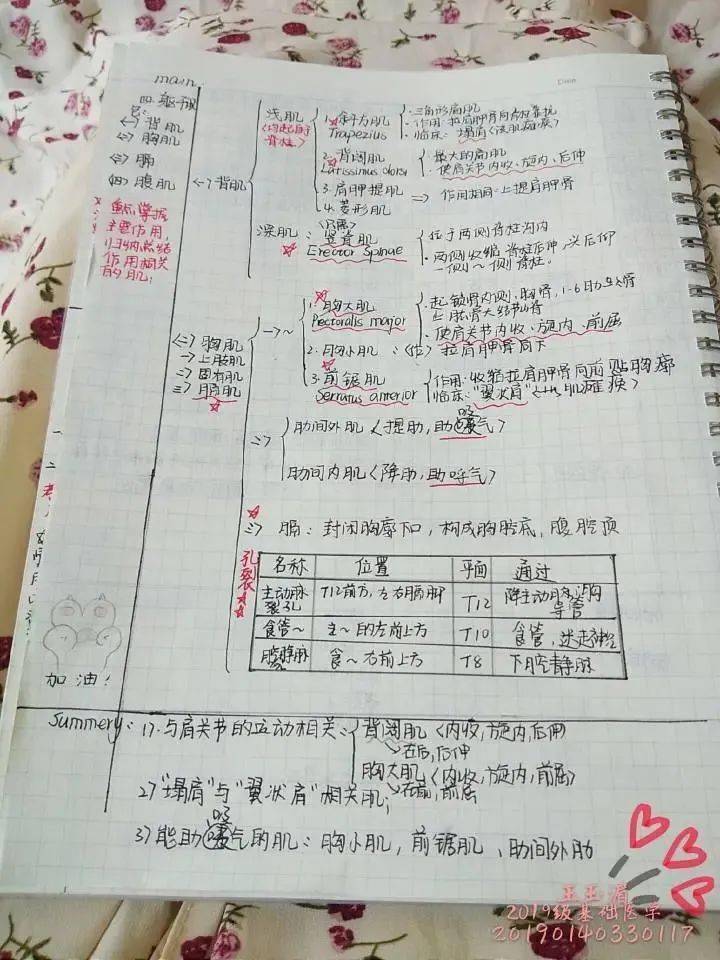 main.
Date
四. 躯干肌
<一> 背肌
<二> 胸肌
<三> 膈
<四> 腹肌
重点掌握
主要作用,
归纳总结
作用相关
的肌;
<一> 背肌
浅肌
<均起自于
脊柱>
1. 斜方肌
Trapezius
· 三角形扁肌
· 作用: 拉肩胛骨向脊柱靠拢
· 临床: 塌肩 <该肌瘫痪>
2. 背阔肌
Latissimus dorsi
· 最大的扁肌
· 使肩关节内收、旋内、后伸
3. 肩胛提肌
4. 菱形肌
=> 作用相同: 上提肩胛骨
深肌:
竖脊肌
Erector Spinae
· 位于两侧脊柱沟内
· 两侧收缩 脊柱后伸, 头后仰
一侧~ 侧脊柱。
<二> 胸肌
一> 上肢肌
二> 固有肌
三> 膈肌
一> ~
1. 胸大肌
Pectoralis major
· 起: 锁骨内侧, 胸骨, 1-6肋软骨
止: 肱骨大结节嵴
· 使肩关节内收、旋内、前屈
2. 胸小肌 : <位> 拉肩胛骨向下
3. 前锯肌
Serratus anterior
作用: 收缩拉肩胛骨向前贴胸廓
临床: "翼状肩" <此肌瘫痪>
二>
肋间外肌 <提肋, 助吸气>
肋间内肌 <降肋, 助呼气>
三> 膈: 封闭胸廓下口, 构成胸腔底, 腹腔顶
孔裂
名称 位置 平面 通过
主动脉裂孔 T12前方, 左右膈脚 T12 降主动脉, 胸导管
食管~ 主~的左前上方 T10 食管, 迷走神经
腔静脉 食~右前上方 T8 下腔静脉
加油!
Summery: 1>. 与肩关节的运动相关:
背阔肌 <内收, 旋内, 后伸>
→在后, 后伸
胸大肌 <内收, 旋内, 前屈>
→在前, 前屈
2> "塌肩"与"翼状肩"相关肌;
3> 能助吸气的肌: 胸小肌, 前锯肌、肋间外肋
2019级基础医学
20190140330117